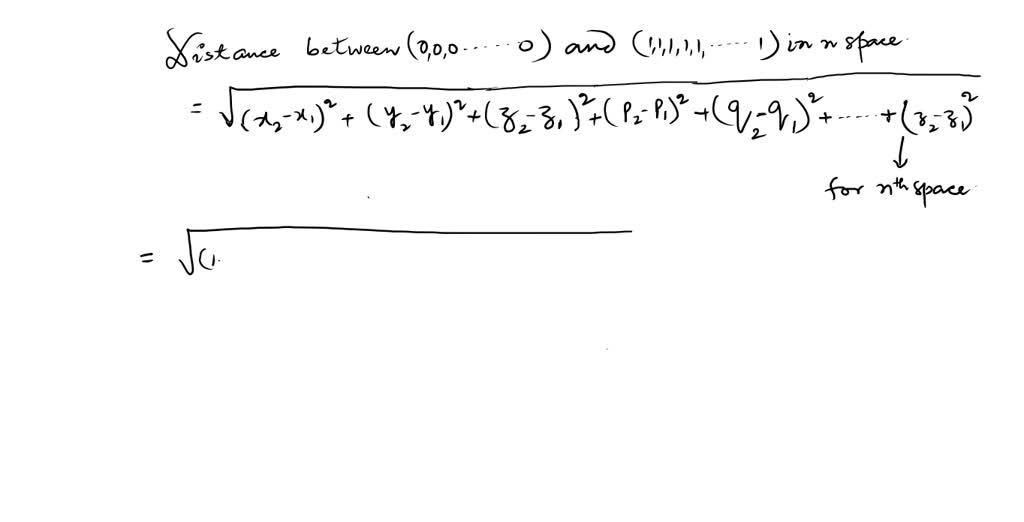 Distance between (0,0,0 ..... 0) and (1,1,1,1,1, ..... 1) in n space.
= √(x₂-x₁)² + (y₂-y₁)² + (z₂-z₁)² + (p₂-p₁)² + (q₂-q₁)² + ..... + (z₂-z₁)²
↓
for nᵗʰ space
= √(1